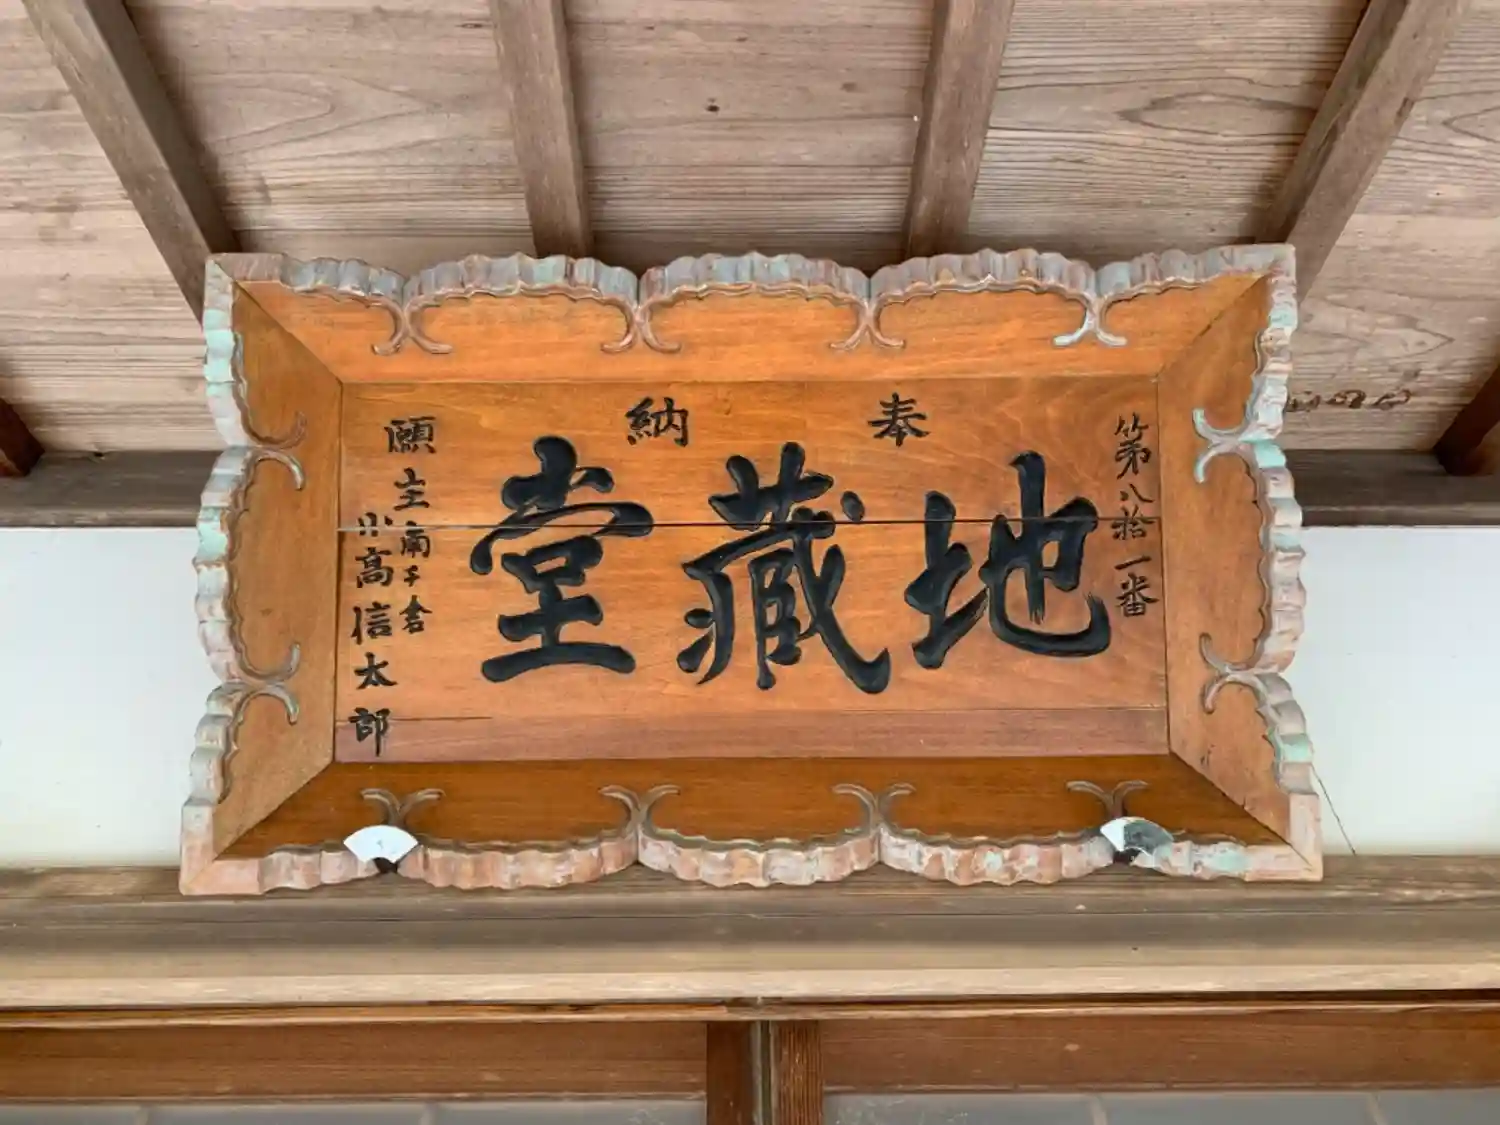 第八拾一番
奉納
地蔵堂
願主 南千倉
小高信太郎